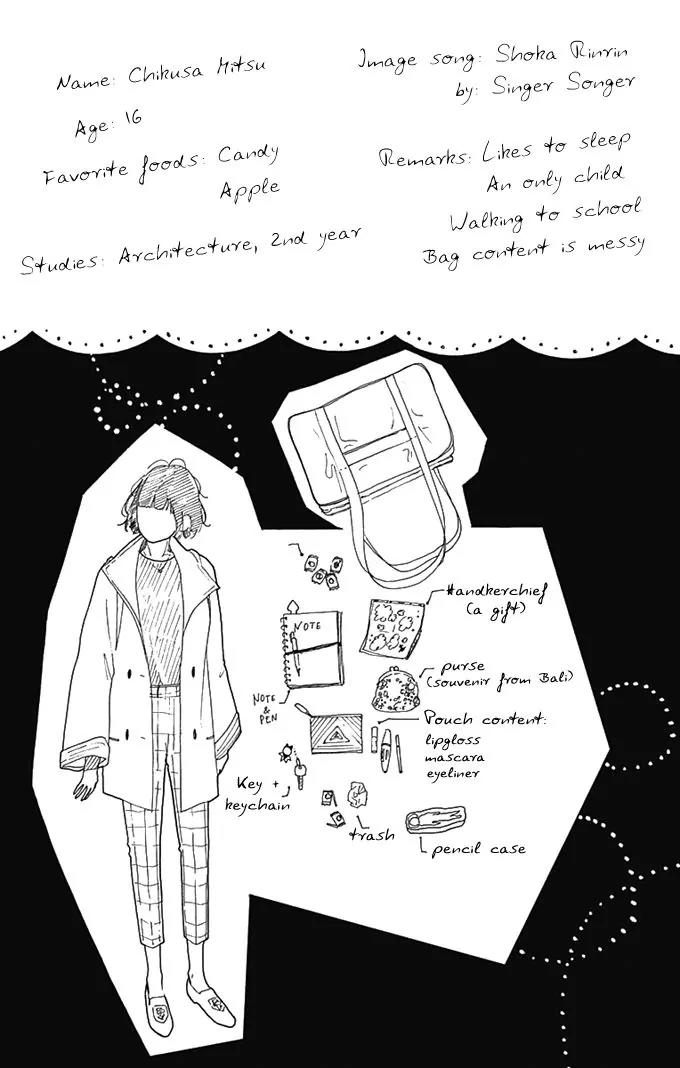 Name: Chikusa Mitsu
Age: 16
Favorite foods: Candy
Apple
Studies: Architecture, 2nd year
Image song: Shoka Rinrin
by: Singer Songer
Remarks: Likes to sleep
An only child
Walking to school
Bag content is messy
NOTE
NOTE
&
PEN
Handkerchief
(a gift)
purse
(souvenir from Bali)
Pouch content:
lipgloss
mascara
eyeliner
Key +
keychain
trash
pencil case